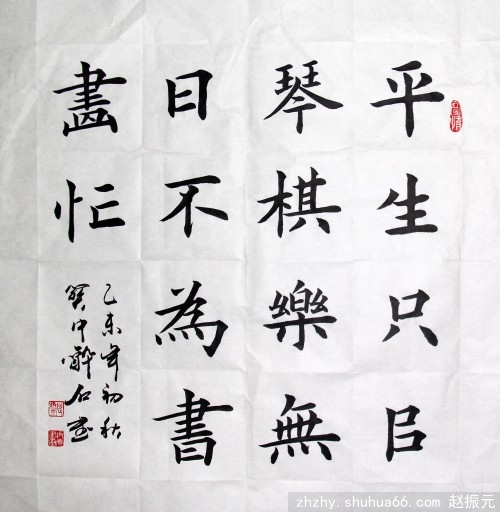 平生只㠯
琴棋樂無
日不為書
畵忙
乙未年初秋
中醉石
zhzhy.shuhua66.com 赵振元